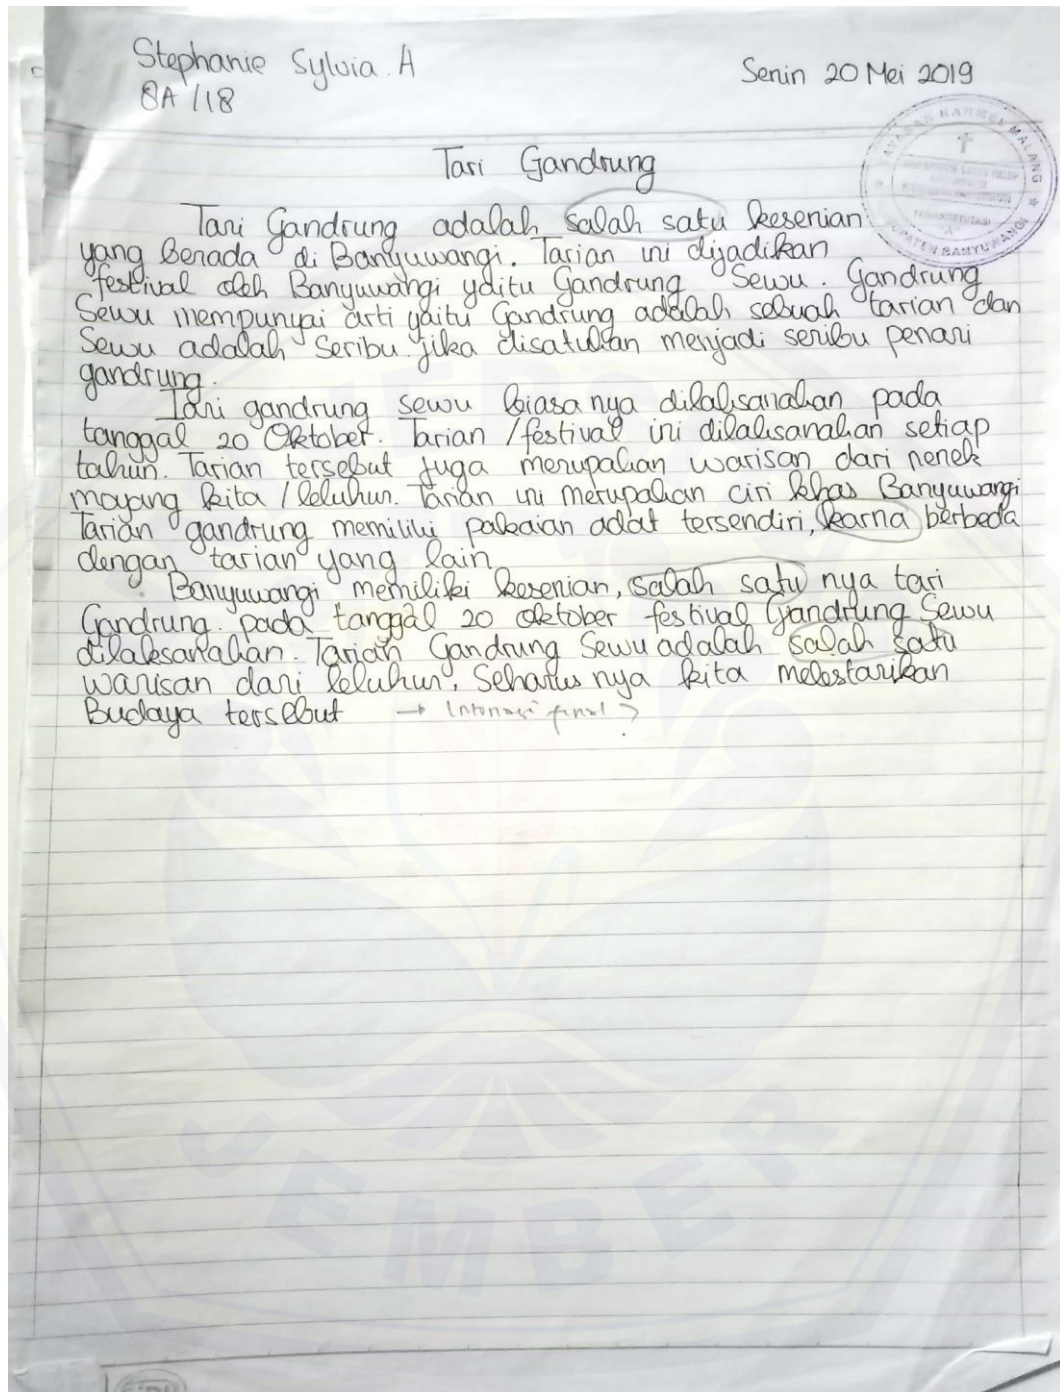 Stephanie Sylvia. A
8A /18
Senin 20 Mei 2019
KARMEL MALANG
Tari Gandrung
Tari Gandrung adalah salah satu kesenian
yang berada di Banyuwangi. Tarian ini dijadikan
festival oleh Banyuwangi yaitu Gandrung Sewu. Gandrung
Sewu mempunyai arti yaitu Gandrung adalah sebuah tarian dan
Sewu adalah Seribu. jika disatukan menjadi seribu penari
gandrung.
Tari gandrung sewu biasa nya dilaksanakan pada
tanggal 20 Oktober. Tarian /festival ini dilaksanakan setiap
tahun. Tarian tersebut juga merupakan warisan dari nenek
moyang kita / leluhur. Tarian ini merupakan ciri khas Banyuwangi
Tarian gandrung memiliki pakaian adat tersendiri, karna berbeda
dengan tarian yang lain
Banyuwangi memiliki kesenian, salah satu nya tari
Gandrung. pada tanggal 20 oktober festival Gandrung Sewu
dilaksanakan. Tarian Gandrung Sewu adalah salah satu
warisan dari leluhur. Seharus nya kita melestarikan
Budaya tersebut → Intonasi final ?
JEMBER